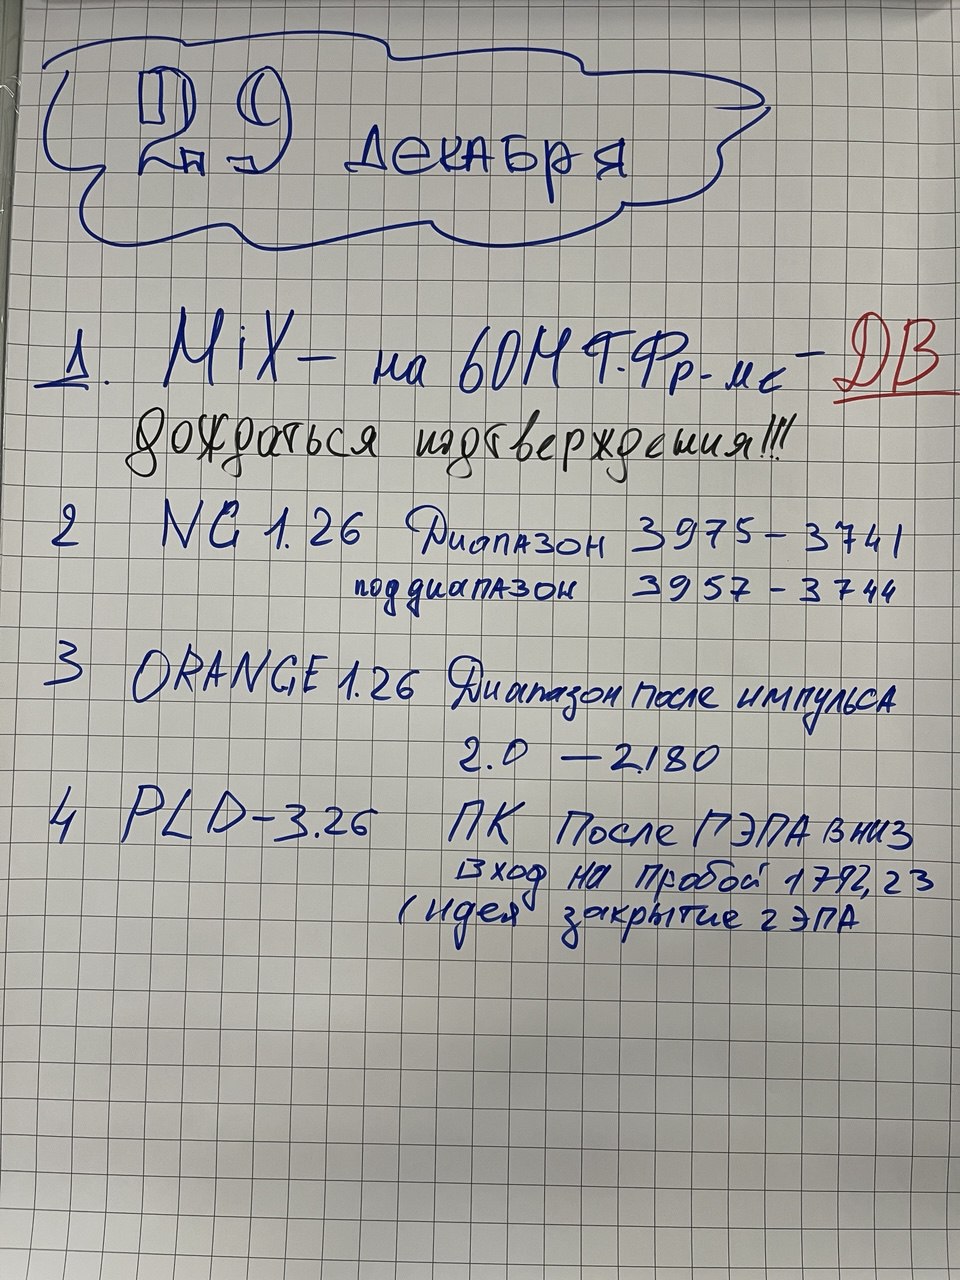 29 декабря
1. MiX – на 60М Т.Фр-ме – DB
дождаться подтверждения!!!
2 NG 1.26 Диапазон 3975 – 3741
поддиапазон 3957 – 3744
3 ORANGE 1.26 Диапазон после импульса
2.0 – 2.180
4 PLD-3.26 ПК После ГЭПА вниз
Вход на пробой 1792,23
(идея закрытие гЭПА